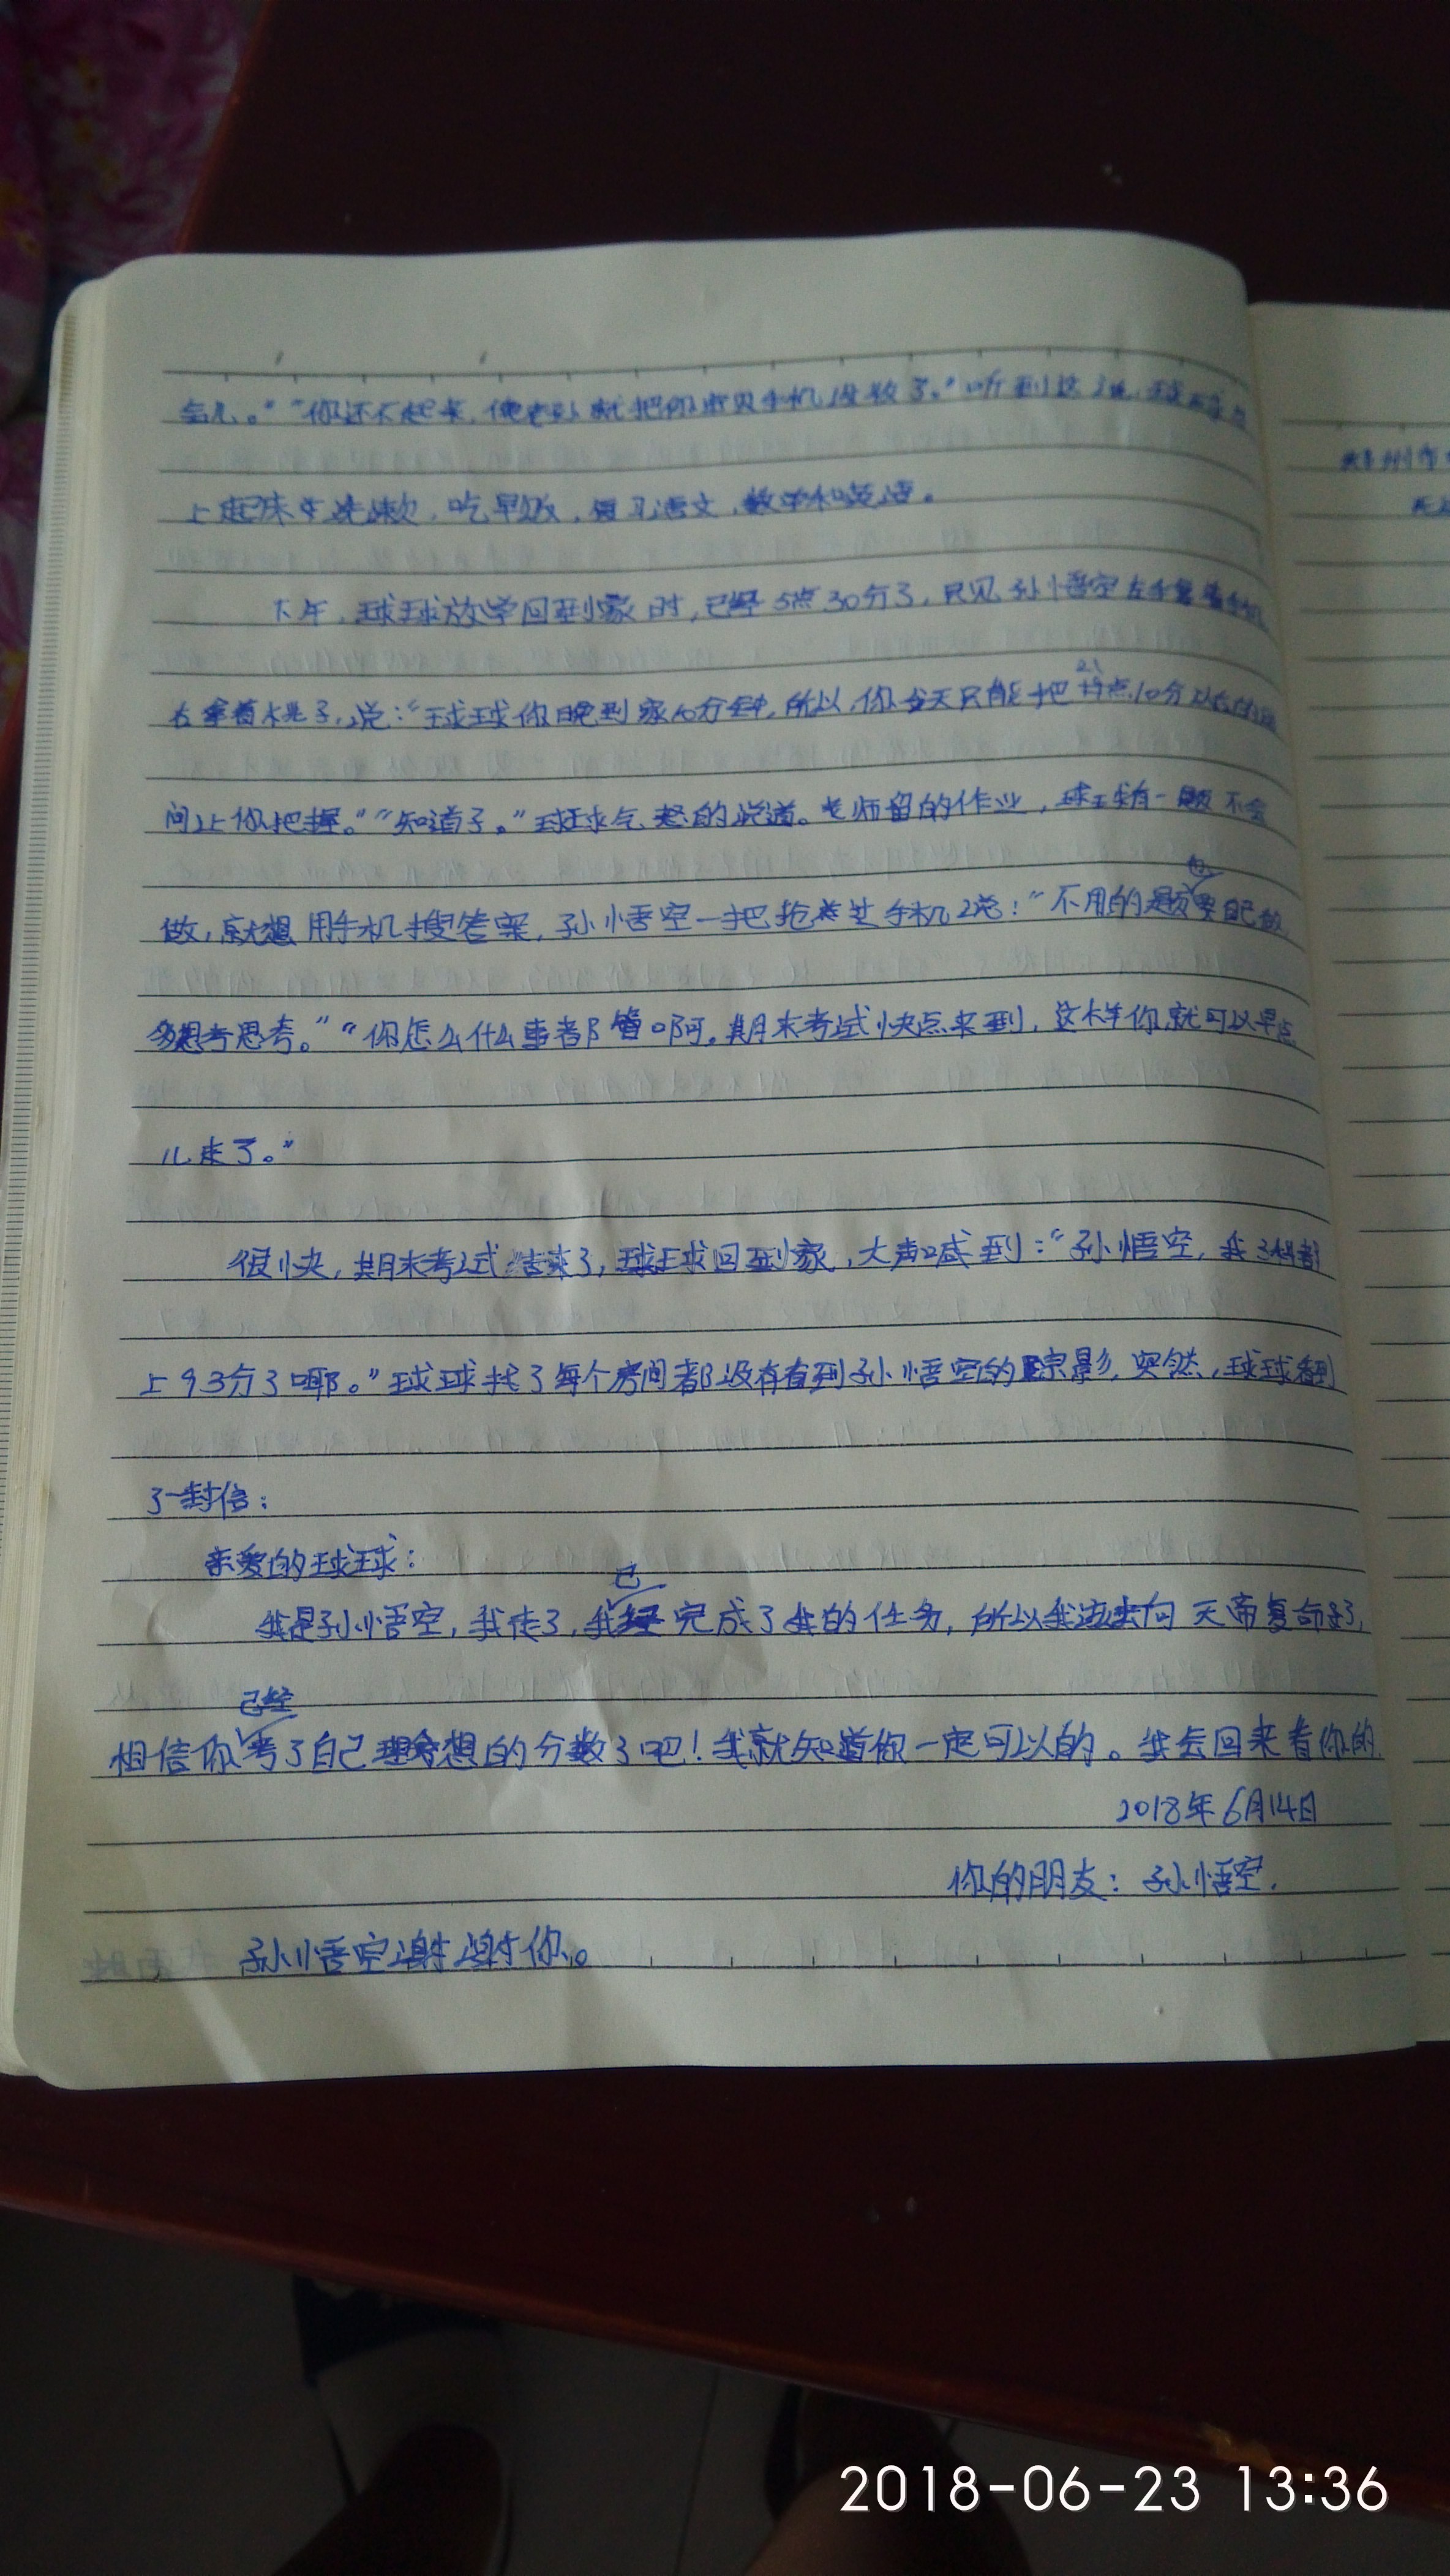 会儿。”“你还不起来,俺老孙就把你的手机没收了。”听到这话,球球
上起床、洗漱、吃早饭,复习语文、数学和英语。
下午,球球放学回到家时,已经5点30分了,只见孙悟空左手拿着手机
右拿着棍子,说:“球球你晚到家10分钟,所以,你今天只能把 点10分以后的时
间让你把握。”“知道了。”球球气怒的说道。老师留的作业,球球有一题不会
做,就想用手机搜答案,孙悟空一把抢过手机说:“不用的题要自己做
多思考思考。”“你怎么什么事都管啊。期末考试快点来到,这样你就可以早点
儿走了。”
很快,期末考试结束了,球球回到家,大声喊到:“孙悟空,我3科都
上93分了耶。”球球找了每个房间都没有看到孙悟空的踪影,突然,球球看到
了一封信:
亲爱的球球:
我是孙悟空,我走了,我已经完成了我的任务,所以我 去向天帝复命了,
相信你已经考了自己理想的分数了吧!我就知道你一定可以的。我会回来看你的
2018年6月14日
你的朋友:孙悟空.
孙悟空谢谢你。
2018-06-23 13:36